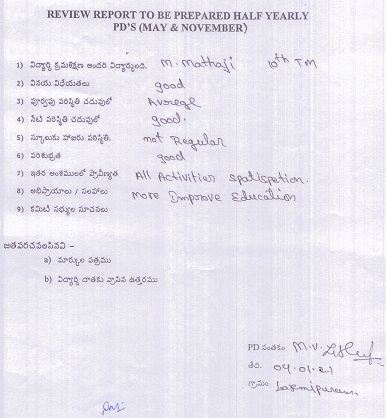 REVIEW REPORT TO BE PREPARED HALF YEARLY
PD'S (MAY & NOVEMBER)
1) విద్యార్థి క్రమశిక్షణ అందరి విద్యార్థులది. M. Mathaji 10th TM
2) వినయ విధేయతలు good
3) పూర్వపు పరిస్థితి చదువులో Avoregl
4) నేటి పరిస్థితి చదువులో good.
5) స్కూలుకు హాజరు పరిస్థితి. not Regular
6) పరిశుభ్రత good
7) ఇతర అంశములలో ప్రావీణ్యత All Activities spatispetion.
8) అభిప్రాయాలు / సలహాలు more Improve Education
9) కమిటీ సభ్యుల సూచనలు
జతపరచవలసినవి –
a) మార్కుల పత్రము
b) విద్యార్థి దాతకు వ్రాసిన ఉత్తరము
PD సంతకం M.V.
తేది. 04.01.21
గ్రామం Laxmipuram.